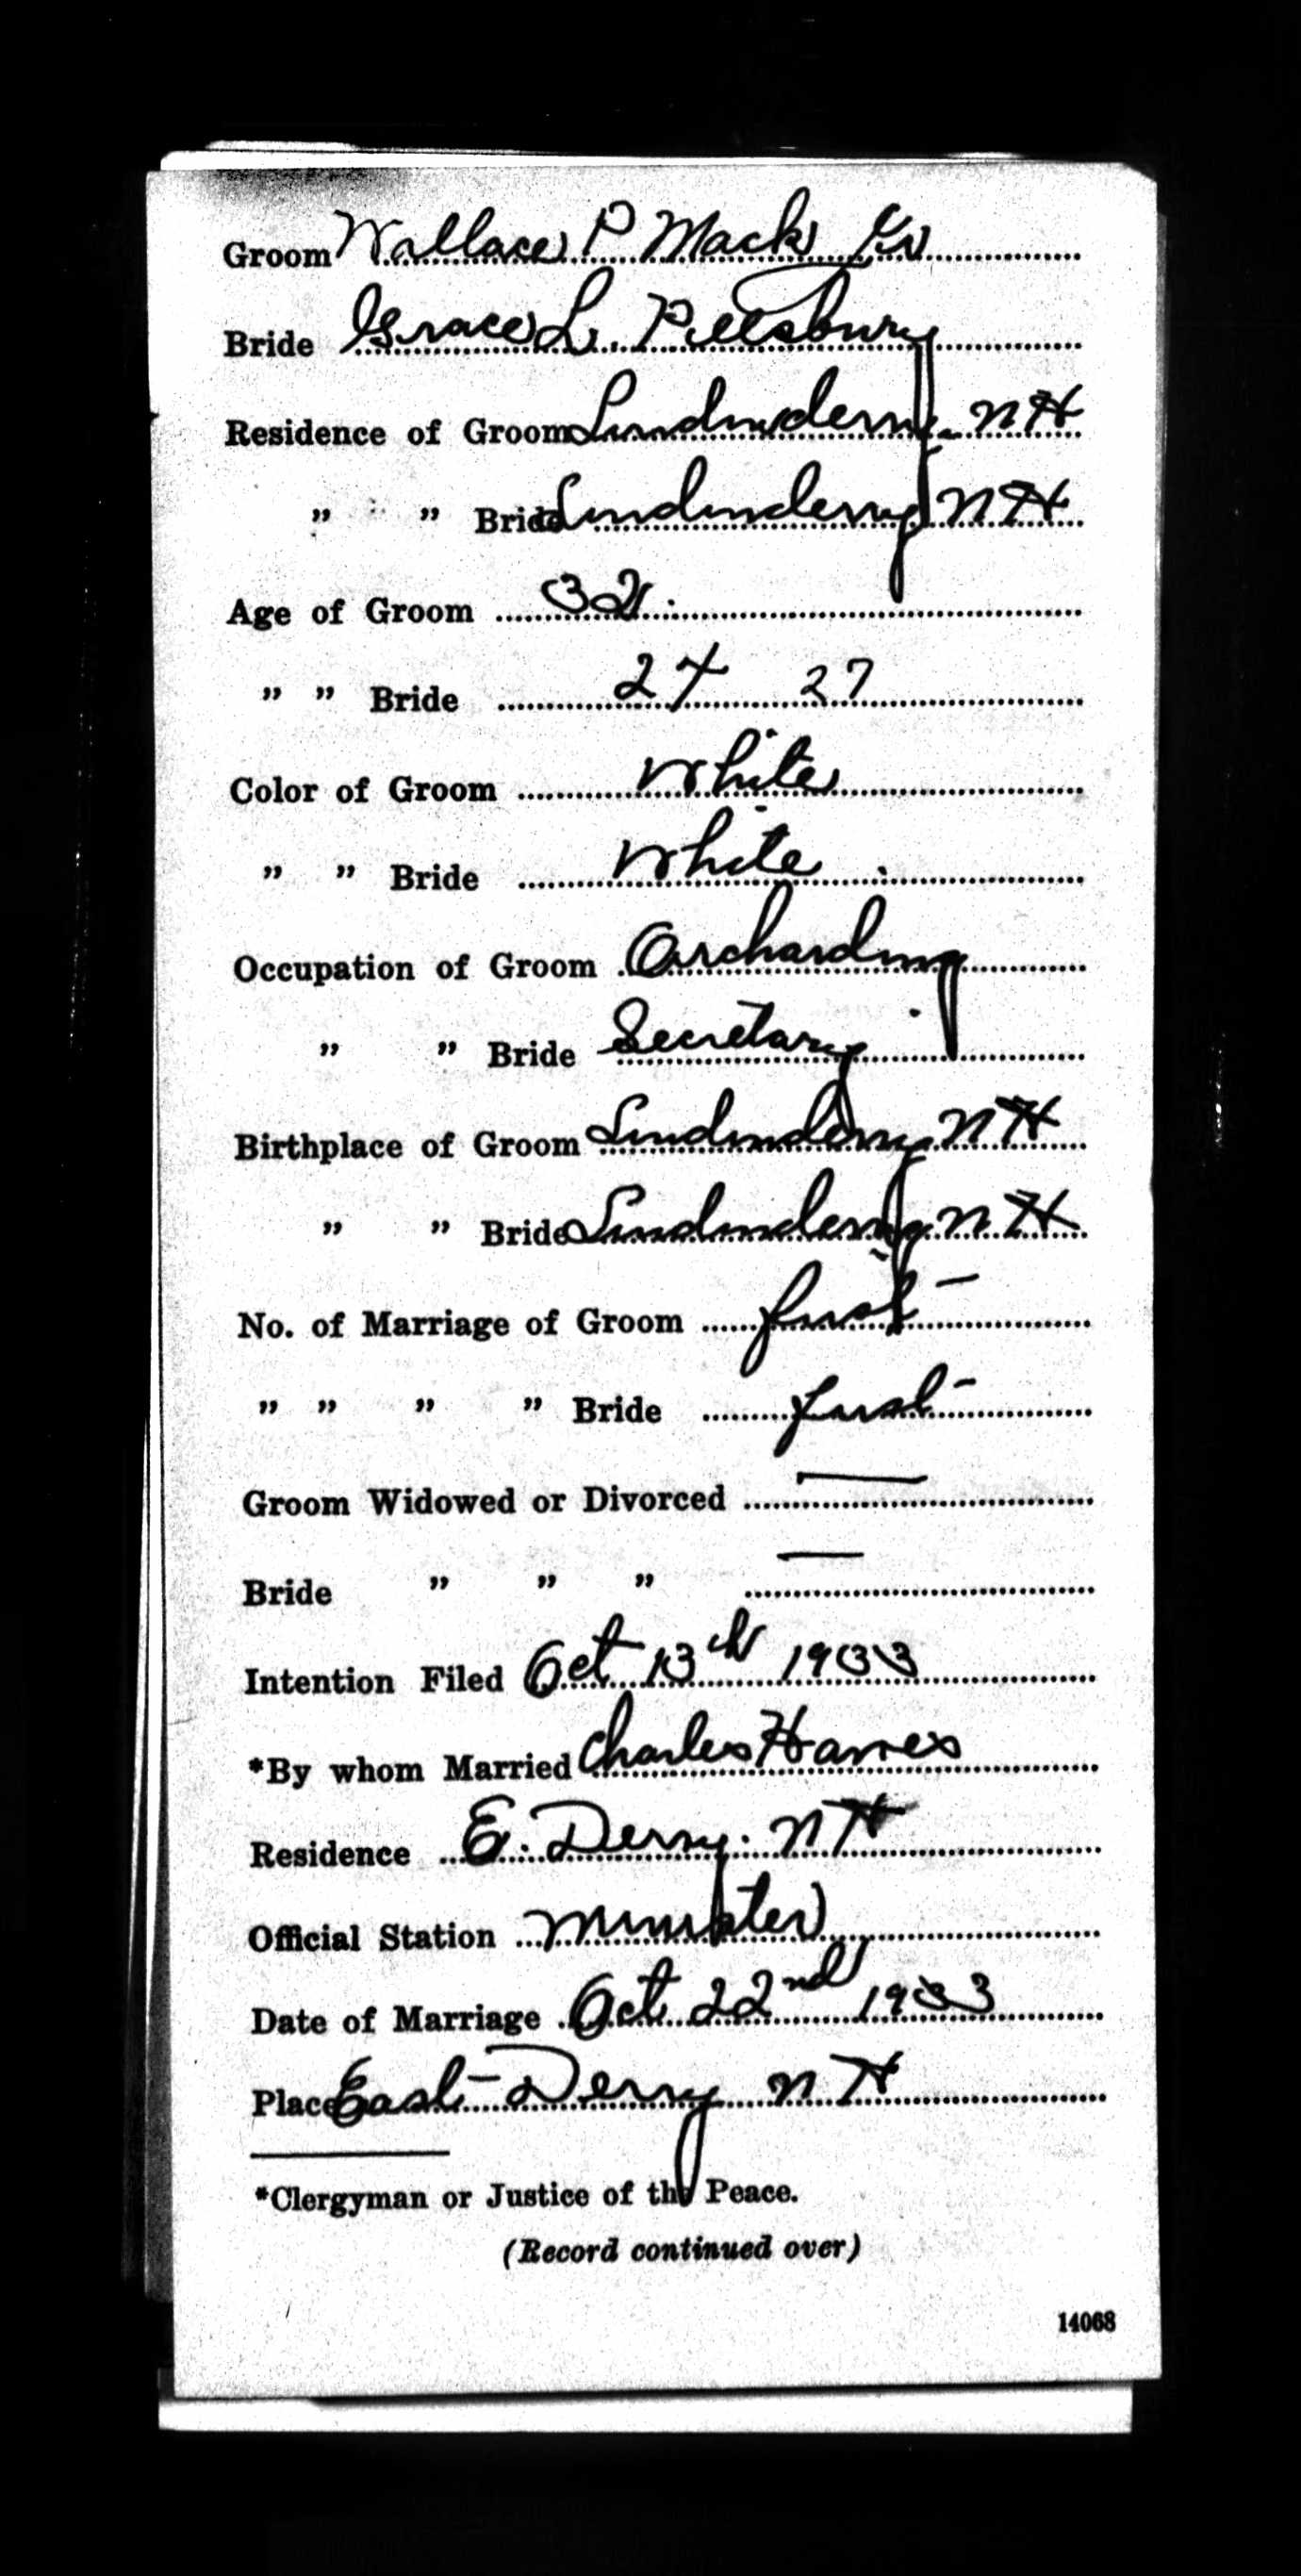 Groom Wallace P Mack Jr
Bride Grace L. Pillsbury
Residence of Groom Londonderry. NH
" " Bride Londonderry NH
Age of Groom 32
" " Bride 24 27
Color of Groom White
" " Bride White
Occupation of Groom Orcharding
" " Bride Secretary
Birthplace of Groom Londonderry NH
" " Bride Londonderry NH
No. of Marriage of Groom first
" " " " Bride first
Groom Widowed or Divorced —
Bride " " " —
Intention Filed Oct 13th 1933
*By whom Married Charles
Residence E. Derry. NH
Official Station Minister
Date of Marriage Oct 22nd 1933
Place East Derry NH
*Clergyman or Justice of the Peace.
(Record continued over)
14068